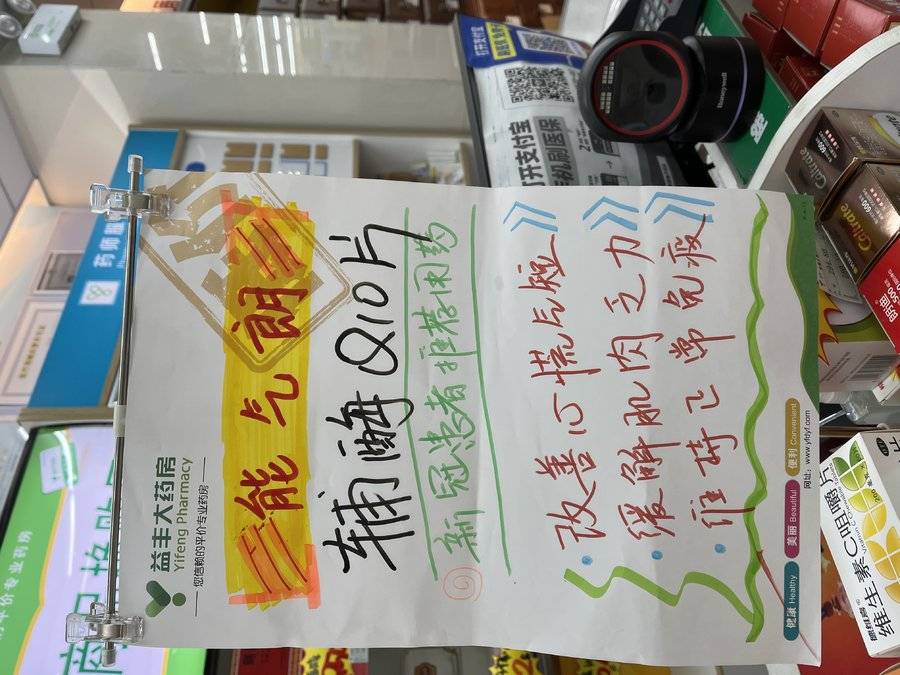 益丰大药房
Yifeng Pharmacy
您信赖的平价专业药房
能气朗
辅酶Q10片
新冠患者推荐用药
改善心慌气短
缓解肌肉乏力
维持正常免疫
健康 Healthy
美丽 Beautiful
便利 Convenient
网址：www.yfdyf.com
药师服
打开支付宝
Honeywell
Caltrate
Caltrate
600
维生素C咀嚼片
Vitamin C